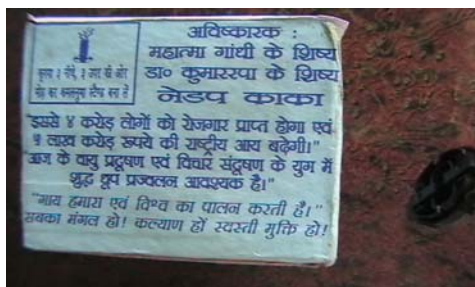 अविष्कारक :
महात्मा गांधी के शिष्य
डा० कुमाररपा के शिष्य
नेडप काका
कृपया २ नीचे, ३ और
मोड़ कर स्टैण्ड बना लें
"इससे ४ करोड़ लोगों को रोजगार प्राप्त होगा एवं
५ लाख करोड़ रूपये की राष्ट्रीय आय बढ़ेगी।"
"आज के वायु प्रदूषण एवं विचार संदूषण के युग में
शुद्ध धूप प्रज्वलन आवश्यक है।"
"गाय हमारा एवं विश्व का पालन करती है।"
सबका मंगल हो! कल्याण हों स्वस्ती मुक्ति हो!